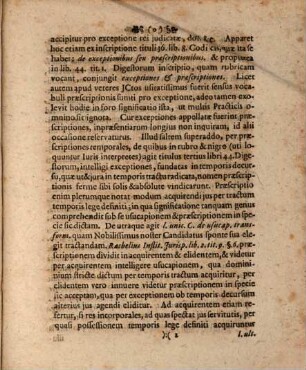 accipitur pro exceptione rei judicatæ, dot. l. 9. Apparet
hoc etiam ex inscriptione tituli 36. lib. 8. Codicis, quæ ita se
habet; de exceptionibus seu præscriptionibus, & propterea
in lib. 44. tit. 1. Digestorum inscriptio, quam rubricam
vocant, conjungit exceptiones & præscriptiones. Licet
autem apud veteres JCtos usitatissimus fuerit sensus voca-
buli præscriptionis sumti pro exceptione, adeotamen exo-
levit hodie in foro significatio illa, ut multis Practicis o-
mninò sit ignota. Cur exceptiones appellatæ fuerint præ-
scriptiones, in præsentiarum longius non inquiram, id aliâ
occasione relaturus. Illud saltem superaddo, per præ-
scriptiones temporales, de quibus in rubro & nigro (uti lo-
quuntur Juris interpretes) agit titulus tertius libri 44. Dige-
storum, intelligi exceptiones, fundatas in temporis decur-
su, quæ usu & jura in temporis tractu radicata, nomen præ-
scriptionis ferme sibi solis & absolutè vindicarunt. Præscriptio
enim plerumque notat modum acquirendi jus per tractum
temporis lege definiti, in qua significatione tanquam genus
comprehendit sub se usucapionem & præscriptionem in spe-
cie sic dictam. De utraque agit l. unic. C. de usucap. trans-
form. quam Nobilissimus noster Candidatus sponte sua ele-
git tractandam. Rachelius Instit. Jurisp. lib. 2. tit. 9. §. 6. præ-
scriptionem dividit in acquirentem & elidentem, & videtur
per acquirentem intelligere usucapionem, qua domini-
um strictè dictum per temporis tractum acquiritur, per
elidentem vero innuere videtur præscriptionem in specie
sic acceptam, qua per exceptionem ob temporis decursum
alterius jus agendi eliditur. Ad acquirentem etiam re-
fertur, si res incorporales, ad quas spectat jus servitutis, per
quasi possessionem temporis lege definiti acquiruntur
)( 2 l. ult.